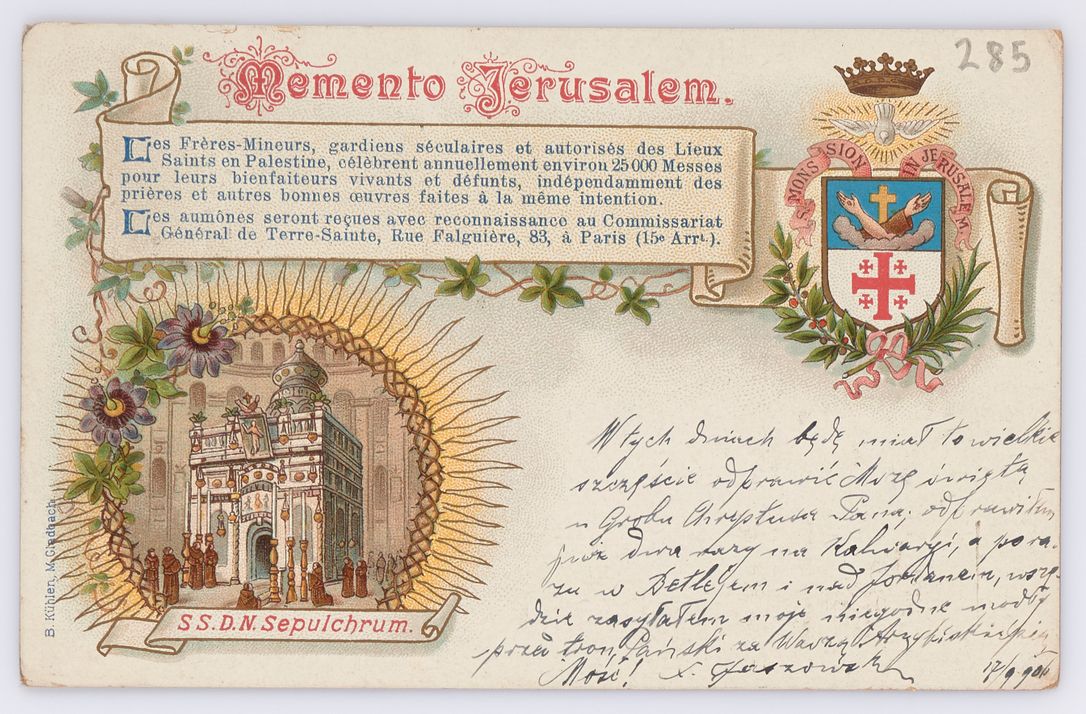 285
Memento Jerusalem.
Les Frères-Mineurs, gardiens séculaires et autorisés des Lieux
Saints en Palestine, célèbrent annuellement environ 25 000 Messes
pour leurs bienfaiteurs vivants et défunts, indépendamment des
prières et autres bonnes œuvres faites à la même intention.
Les aumônes seront reçues avec reconnaissance au Commissariat
Général de Terre-Sainte, Rue Falguière, 83, à Paris (15e Arrt.).
S. MONS SION IN JERUSALEM
W tych dniach będę miał to wielkie
szczęście odprawić Mszę świętą
u Grobu Chrystusa Pana; odprawiłem
już dwa razy na Kalwaryi, a po ra-
zu w Betlejem i nad Jordanem, wszę-
dzie zasyłałem moje niegodne modły
przed tron Pański za Waszą Arcybiskupią
Mość! X.
17/9 906
S S. D. N. Sepulchrum.
B. Kühlen, M. Gladbach.